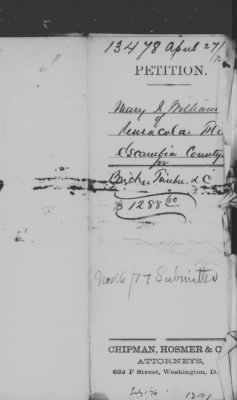 13478 April 27/
PETITION.
Mary S Williams
of
Pensacola Fla
Escambia County
for
Bricks, Timber &C
$1288 60
Nov. 6/77 Submitted
CHIPMAN, HOSMER & C
ATTORNEYS,
632 F Street, Washington, D.